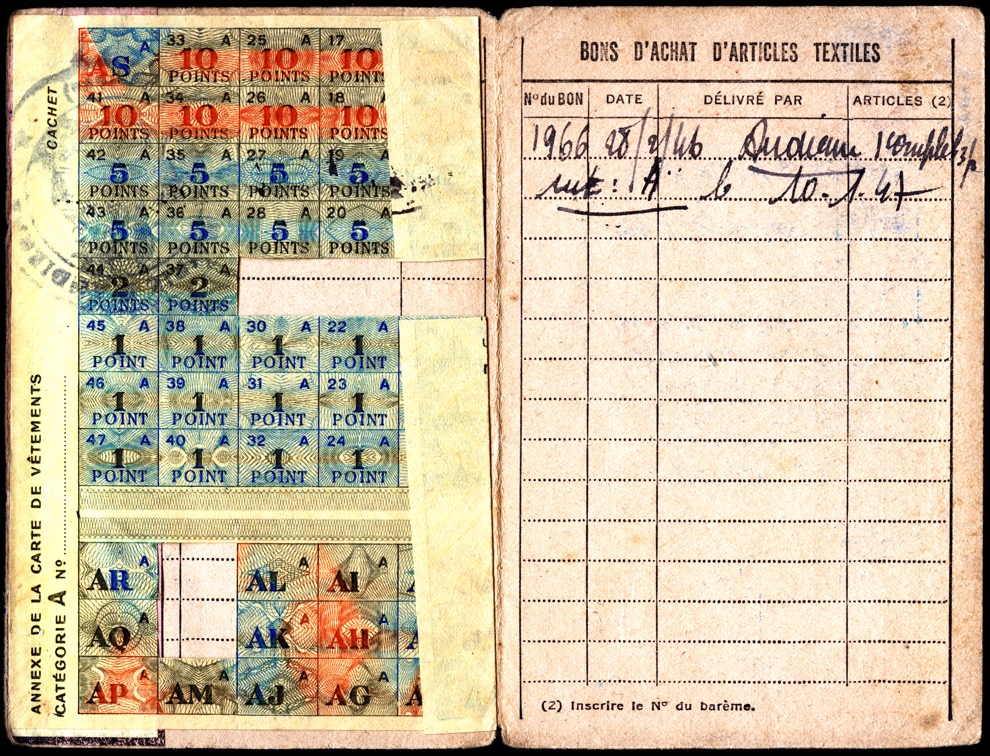 ANNEXE DE LA CARTE DE VÊTEMENTS
CATÉGORIE A Nº
CACHET
AS A
33 A 25 A 17
10 10 10
POINTS POINTS POINTS
41 A 34 A 26 A 18
10 10 10 10
POINTS POINTS POINTS POINTS
42 A 35 A 27 A 19
5 5 5 5
POINTS POINTS POINTS POINTS
43 A 36 A 28 A 20
5 5 5 5
POINTS POINTS POINTS POINTS
44 A 37 A
2 2
POINTS POINTS
45 A 38 A 30 A 22 A
1 1 1 1
POINT POINT POINT POINT
46 A 39 A 31 A 23 A
1 1 1 1
POINT POINT POINT POINT
47 A 40 A 32 A 24 A
1 1 1 1
POINT POINT POINT POINT
AR A AL A AI A
AQ A AK A AH A
AP A AM A AJ A AG A A
BONS D'ACHAT D'ARTICLES TEXTILES
Nº du BON DATE DÉLIVRÉ PAR ARTICLES (2)
1966 28/2/46
A 10.1.47
(2) Inscrire le Nº du barème.